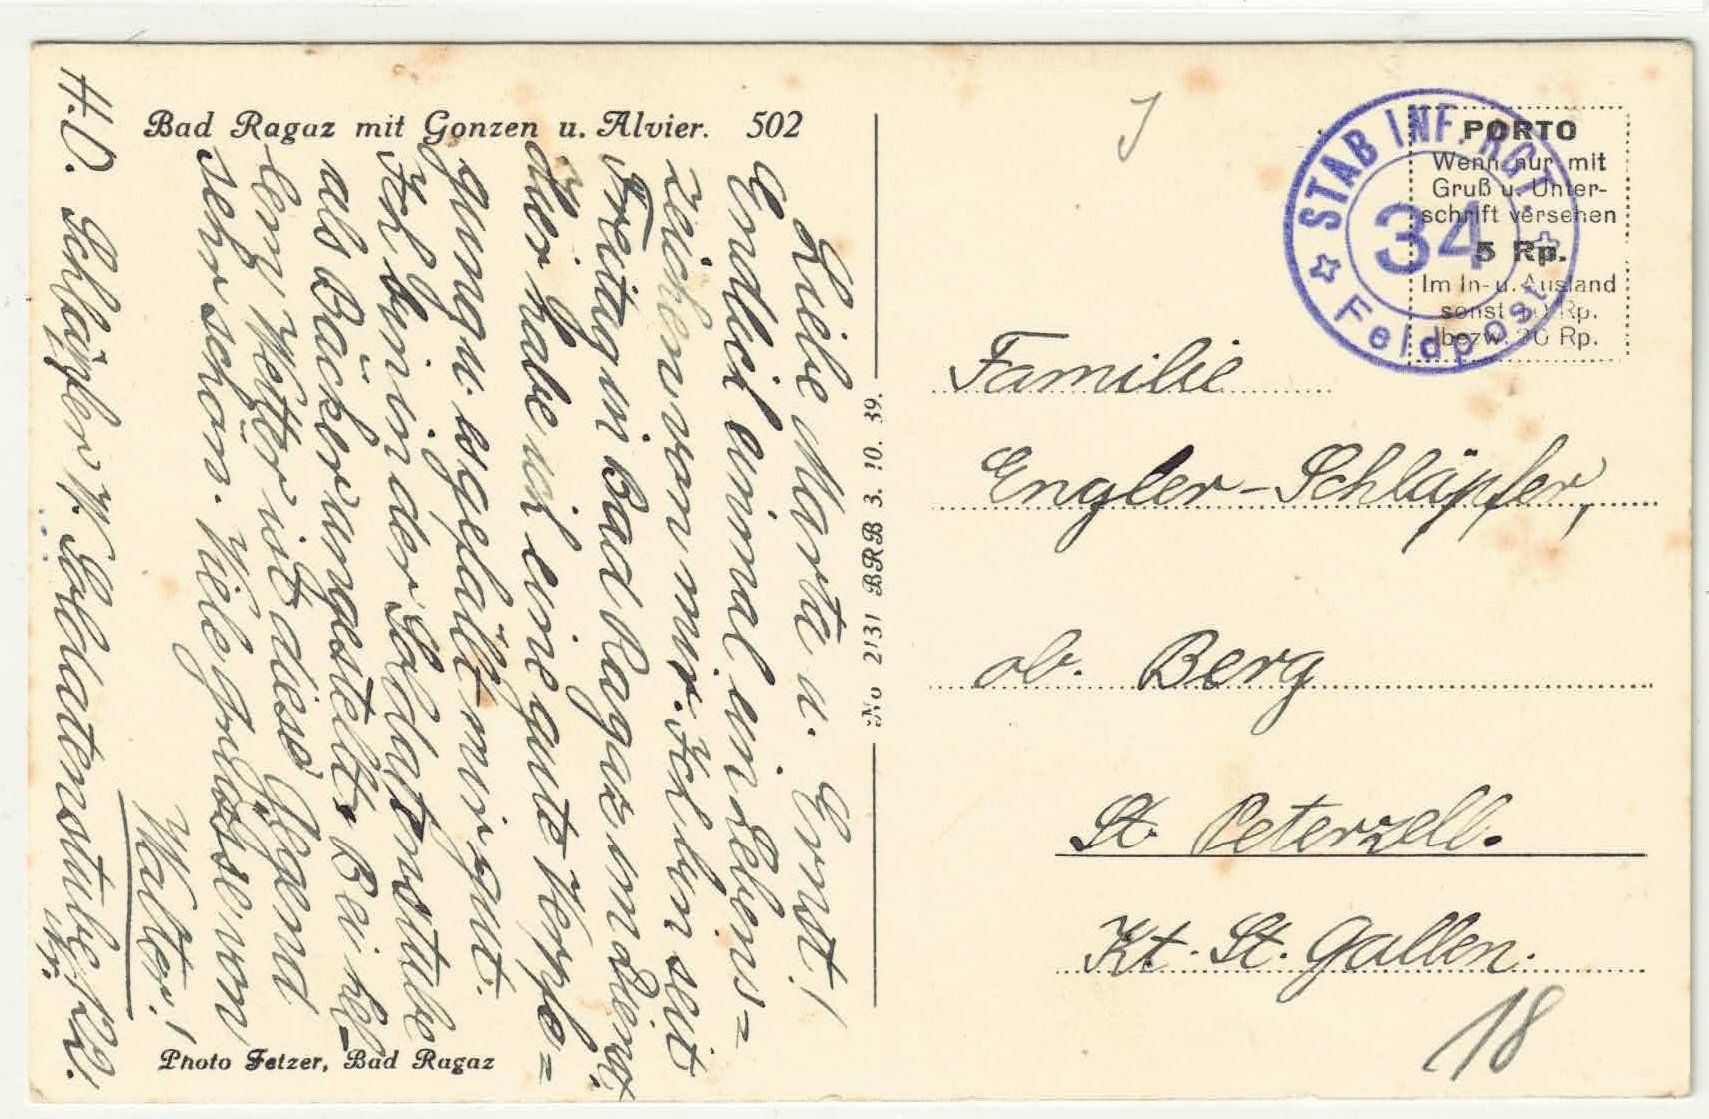 Bad Ragaz mit Gonzen u. Alvier. 502
Liebe Marta u. Ernst!
Endlich einmal ein Lebens=
zeichen von mir. Ich bin seit
Freitag in Bad Ragaz im Dienst.
Hier habe ich eine gute Verpfle=
gung u. es gefällt mir gut.
Ich bin in der Soldatenstube
als Bäcker angestellt. Bei hel=
lem Wetter ist diese Gegend
sehr schön. Viele grüsse von
Walter!
H.D. Schläpfer W. Soldatenstube
Photo Fetzer, Bad Ragaz
No 2131 BRB 3. 10. 39.
STAB INF. RGT.
34
Feldpost
PORTO
Wenn nur mit
Gruß u. Unter-
schrift versehen
5 Rp.
Im In- u. Ausland
sonst 10 Rp.
bezw. 20 Rp.
Familie
Engler-Schläpfer,
ob. Berg
St. Peterzell.
Kt. St. Gallen.
18